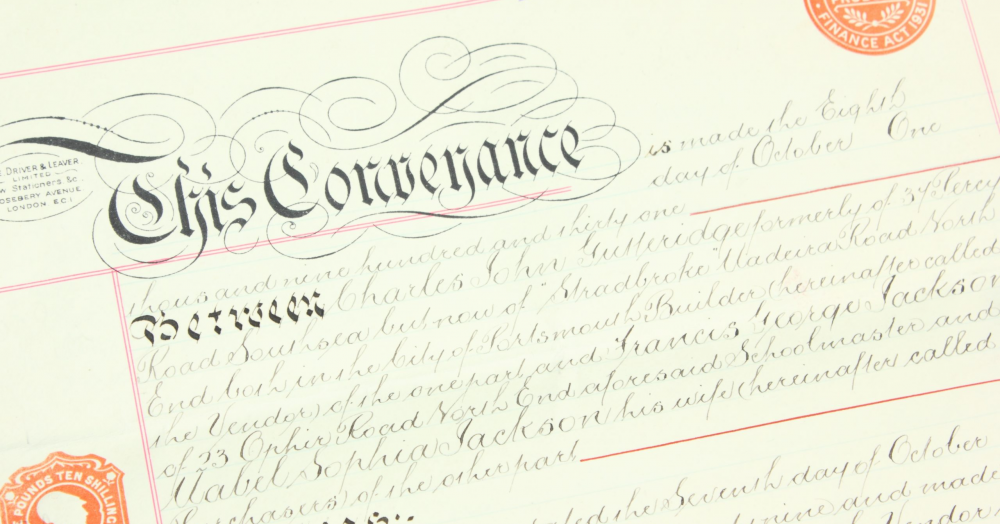 FINANCE ACT 1931
DRIVER & LEAVER
LIMITED
Stationers, &c.
ROSEBERY AVENUE
LONDON E.C.1
This Conveyance is made the Eighth
day of October One
thousand nine hundred and thirty one
Between Charles John Gutteridge formerly of 37 Percy
Road Southsea but now of "Stradbroke" Madeira Road North
End both in the City of Portsmouth Builder (hereinafter called
the Vendor) of the one part and Francis George Jackson
of 23 Ophir Road North End aforesaid Schoolmaster and
Mabel Sophia Jackson his wife (hereinafter called
Purchasers) of the other part
dated the Seventh day of October
nine and made
Vendor
POUNDS TEN SHILLING